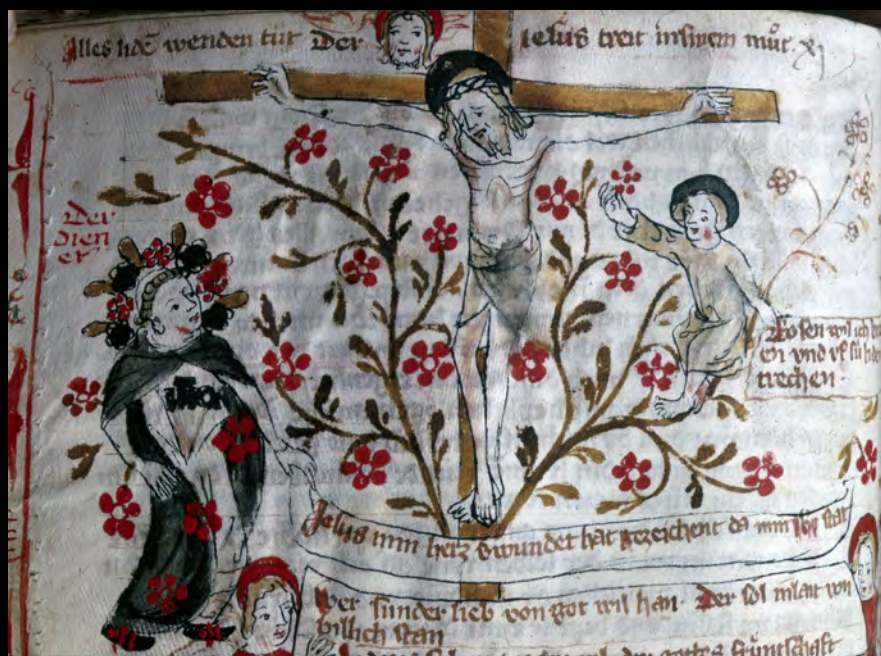 Alles lidē wenden tůt Der Iesus treit in sinem můt.
Der
dien
er
Rosen wil ich
en vnd vf sú
trechen.
Jesus min herz hat gezeichent da min stat
Wer sunder lieb von got wil han · Der sol
billich stan
gottes frúntschaft